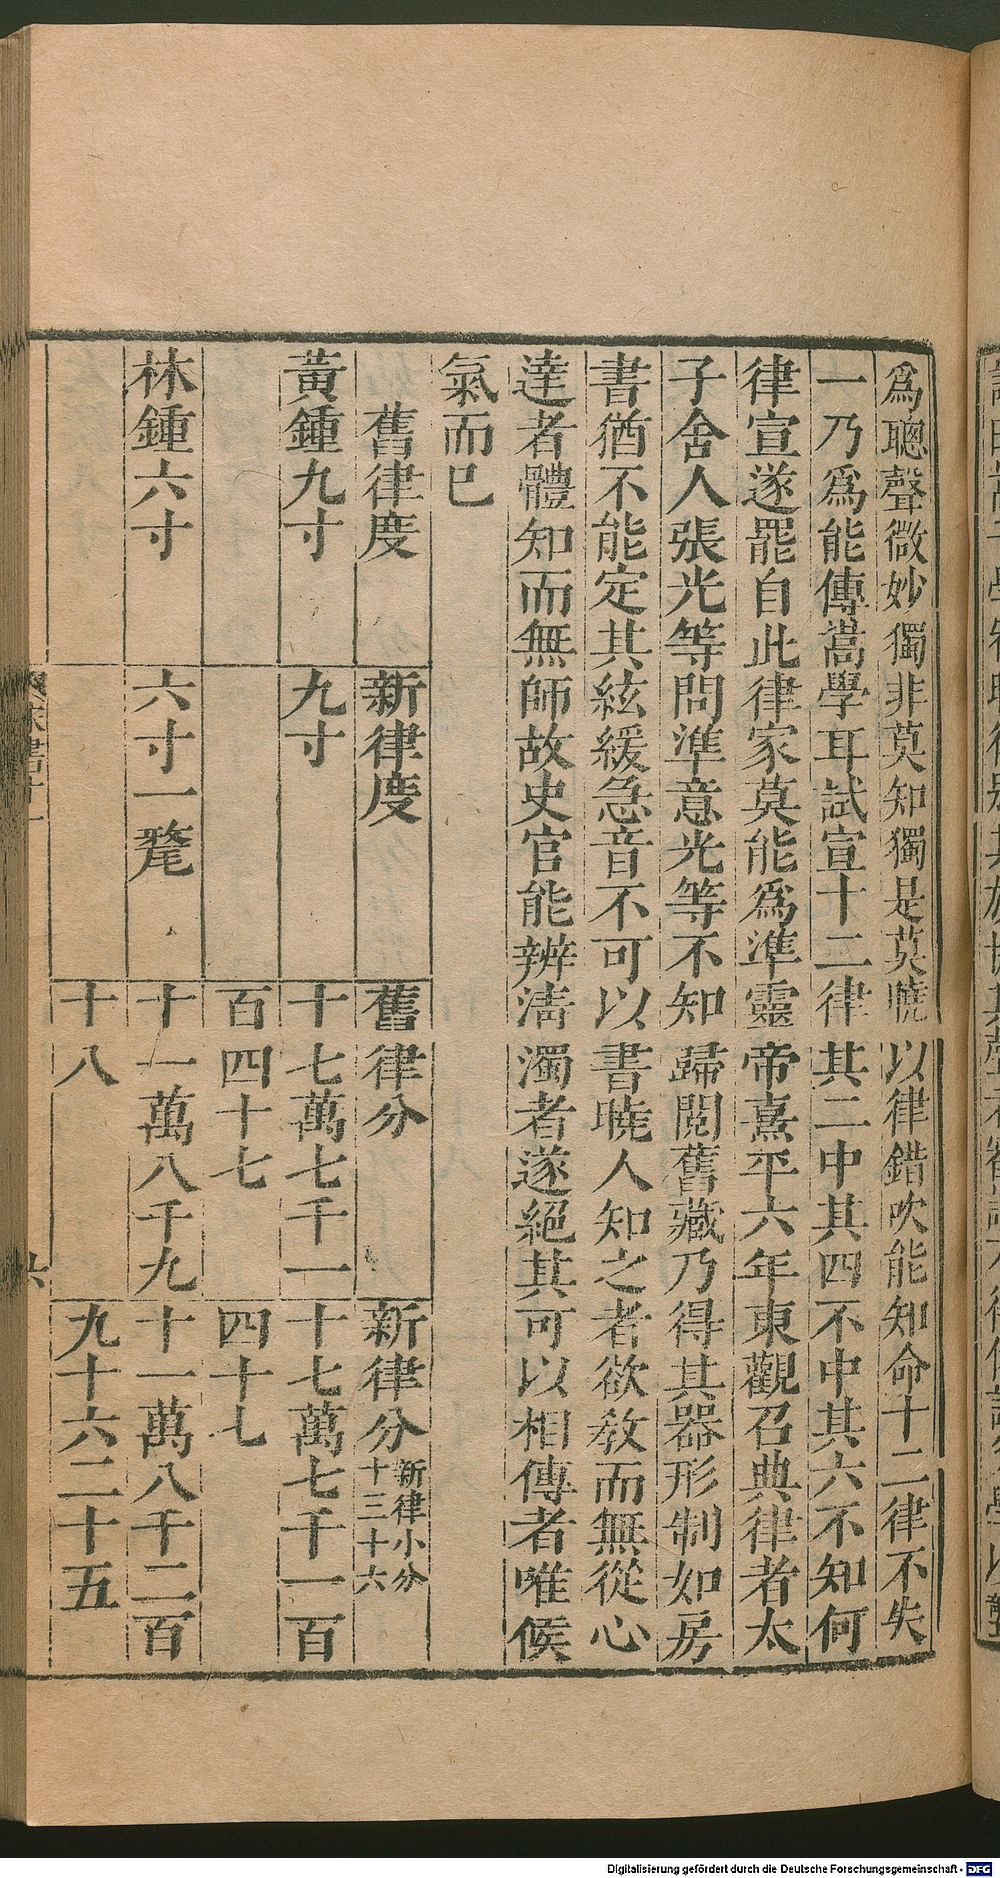 爲聰聲微妙獨非莫知獨是莫曉以律錯吹能知命十二律不失
一乃爲能傳嵩學耳試宣十二律其二中其四不中其六不知何
律宣遂罷自此律家莫能爲準靈帝熹平六年東觀召典律者太
子舍人張光等問準意光等不知歸閱舊藏乃得其器形制如房
書猶不能定其絃緩急音不可以書曉人知之者欲敎而無從心
達者體知而無師故史官能辨淸濁者遂絕其可以相傳者唯候
氣而已
舊律度
新律度
舊律分
新律分
新律小分
十三十六
黃鍾九寸
九寸
十七萬七千一
十七萬七千一百
百四十七
四十七
林鍾六寸
六寸一氂
十一萬八千九
十一萬八千二百
十八
九十六二十五
六
Digitalisierung gefördert durch die Deutsche Forschungsgemeinschaft - DFG